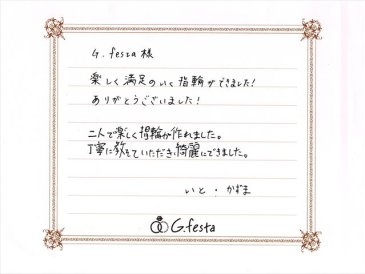 G.festa 様
楽しく満足のいく指輪ができました!
ありがとうございました!
二人で楽しく指輪が作れました。
丁寧に教えていただき綺麗にできました。
いと・かずま
G.festa